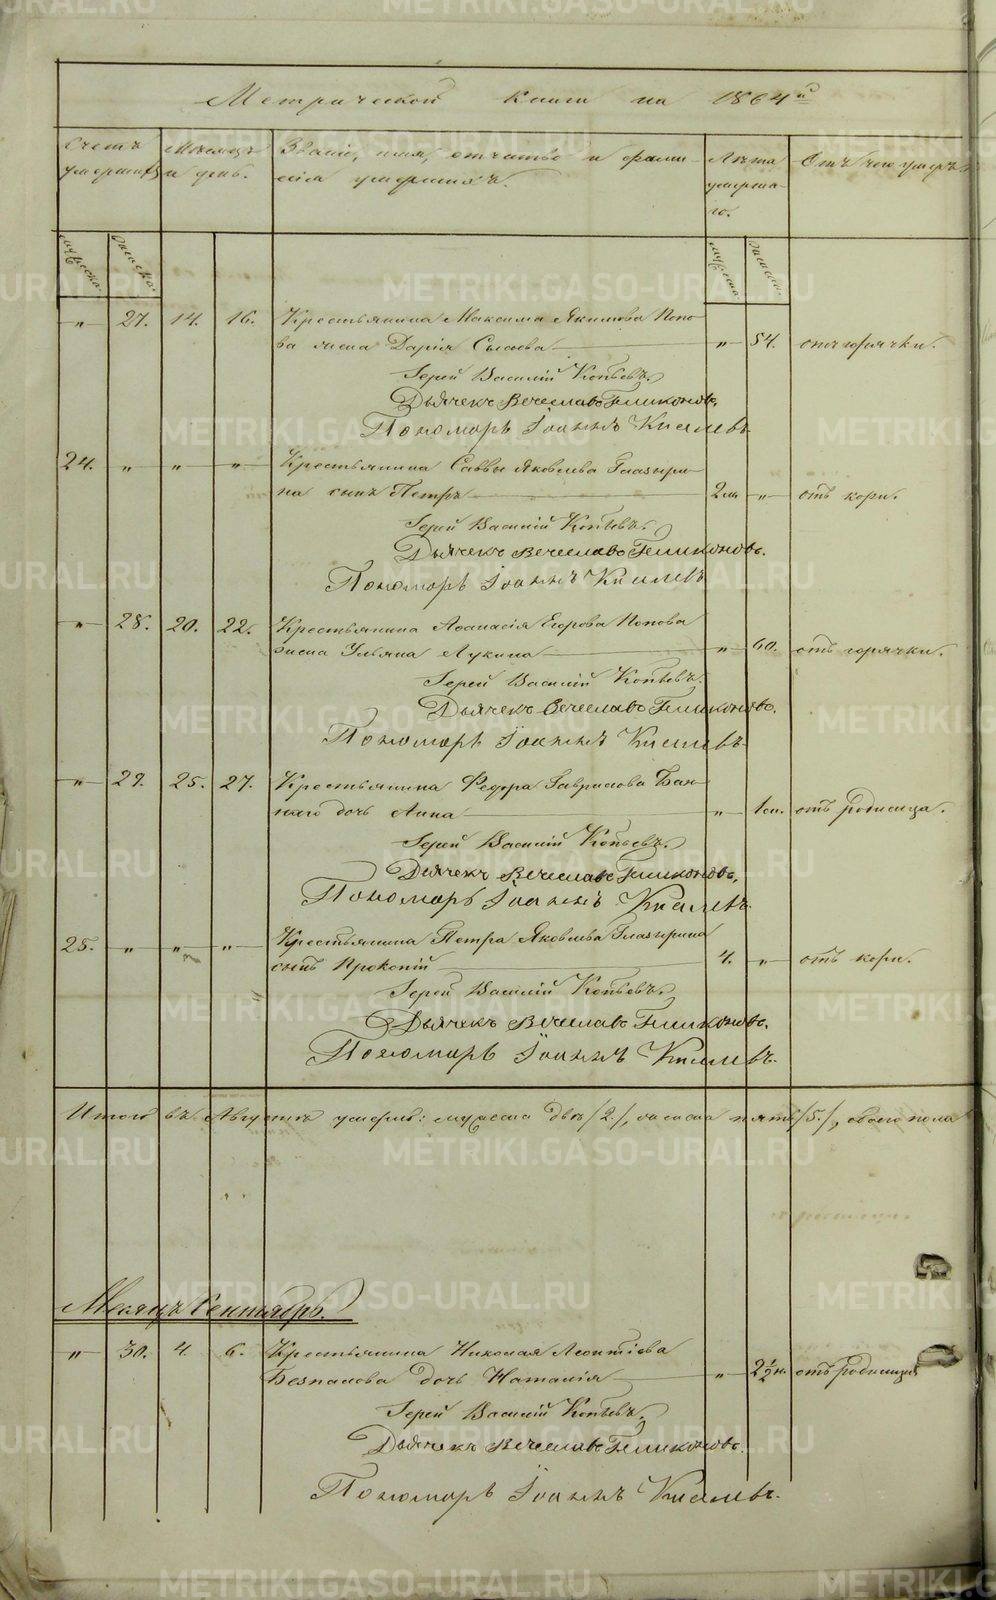 Метрической книги на 1864й
Счетъ умершихъ
Месяцъ и день.
Званіе, имя, отчество и фами-
лія умершихъ.
Лѣта умерша-
го.
Отъ чего умеръ.
мужеска. женска.
мужеска. женска.
„ 27. 14. 16. Крестьянина Максима Якимова Попо-
ва жена Дарія Сысоева „ 54. отъ горячки.
Іерей Василій Копьевъ.
Дьячекъ Вечеславъ Геликоновъ.
Пономарь Іоаннъ Киселевъ.
24. „ „ „ Крестьянина Саввы Яковлева Глазыри-
на сынъ Петръ 2 „ отъ кори.
Іерей Василій Копьевъ.
Дьячекъ Вечеславъ Геликоновъ.
Пономарь Іоаннъ Киселевъ
„ 28. 20. 22. Крестьянина Аѳанасія Егорова Попова
жена Ульяна Лукина „ 60. отъ горячки.
Іерей Василій Копьевъ.
Дьячекъ Вечеславъ Геликоновъ.
Пономарь Іоаннъ Киселевъ.
„ 29. 25. 27. Крестьянина Федора Гаврилова
дочь Анна „ отъ родимца.
Іерей Василій Копьевъ.
Дьячекъ Вечеславъ Геликоновъ.
Пономарь Іоаннъ Киселевъ.
25. „ „ „ Крестьянина Петра Яковлева Глазырина
сынъ Прокопій 4. „ отъ кори.
Іерей Василій Копьевъ.
Дьячекъ Вечеславъ Геликоновъ.
Пономарь Іоаннъ Киселевъ.
Итого въ Августѣ умерло: мужеска два /2./, женска пять /5./, обоего пола
Месяцъ Сентябрь.
„ 30. 4. 6. Крестьянина Николая Леонтіева
Безпалова дочь Наталія „ 2½ н. отъ родимца
Іерей Василій Копьевъ.
Дьячекъ Вечеславъ Геликоновъ.
Пономарь Іоаннъ Киселевъ.
METRIKI.GASO-URAL.RU